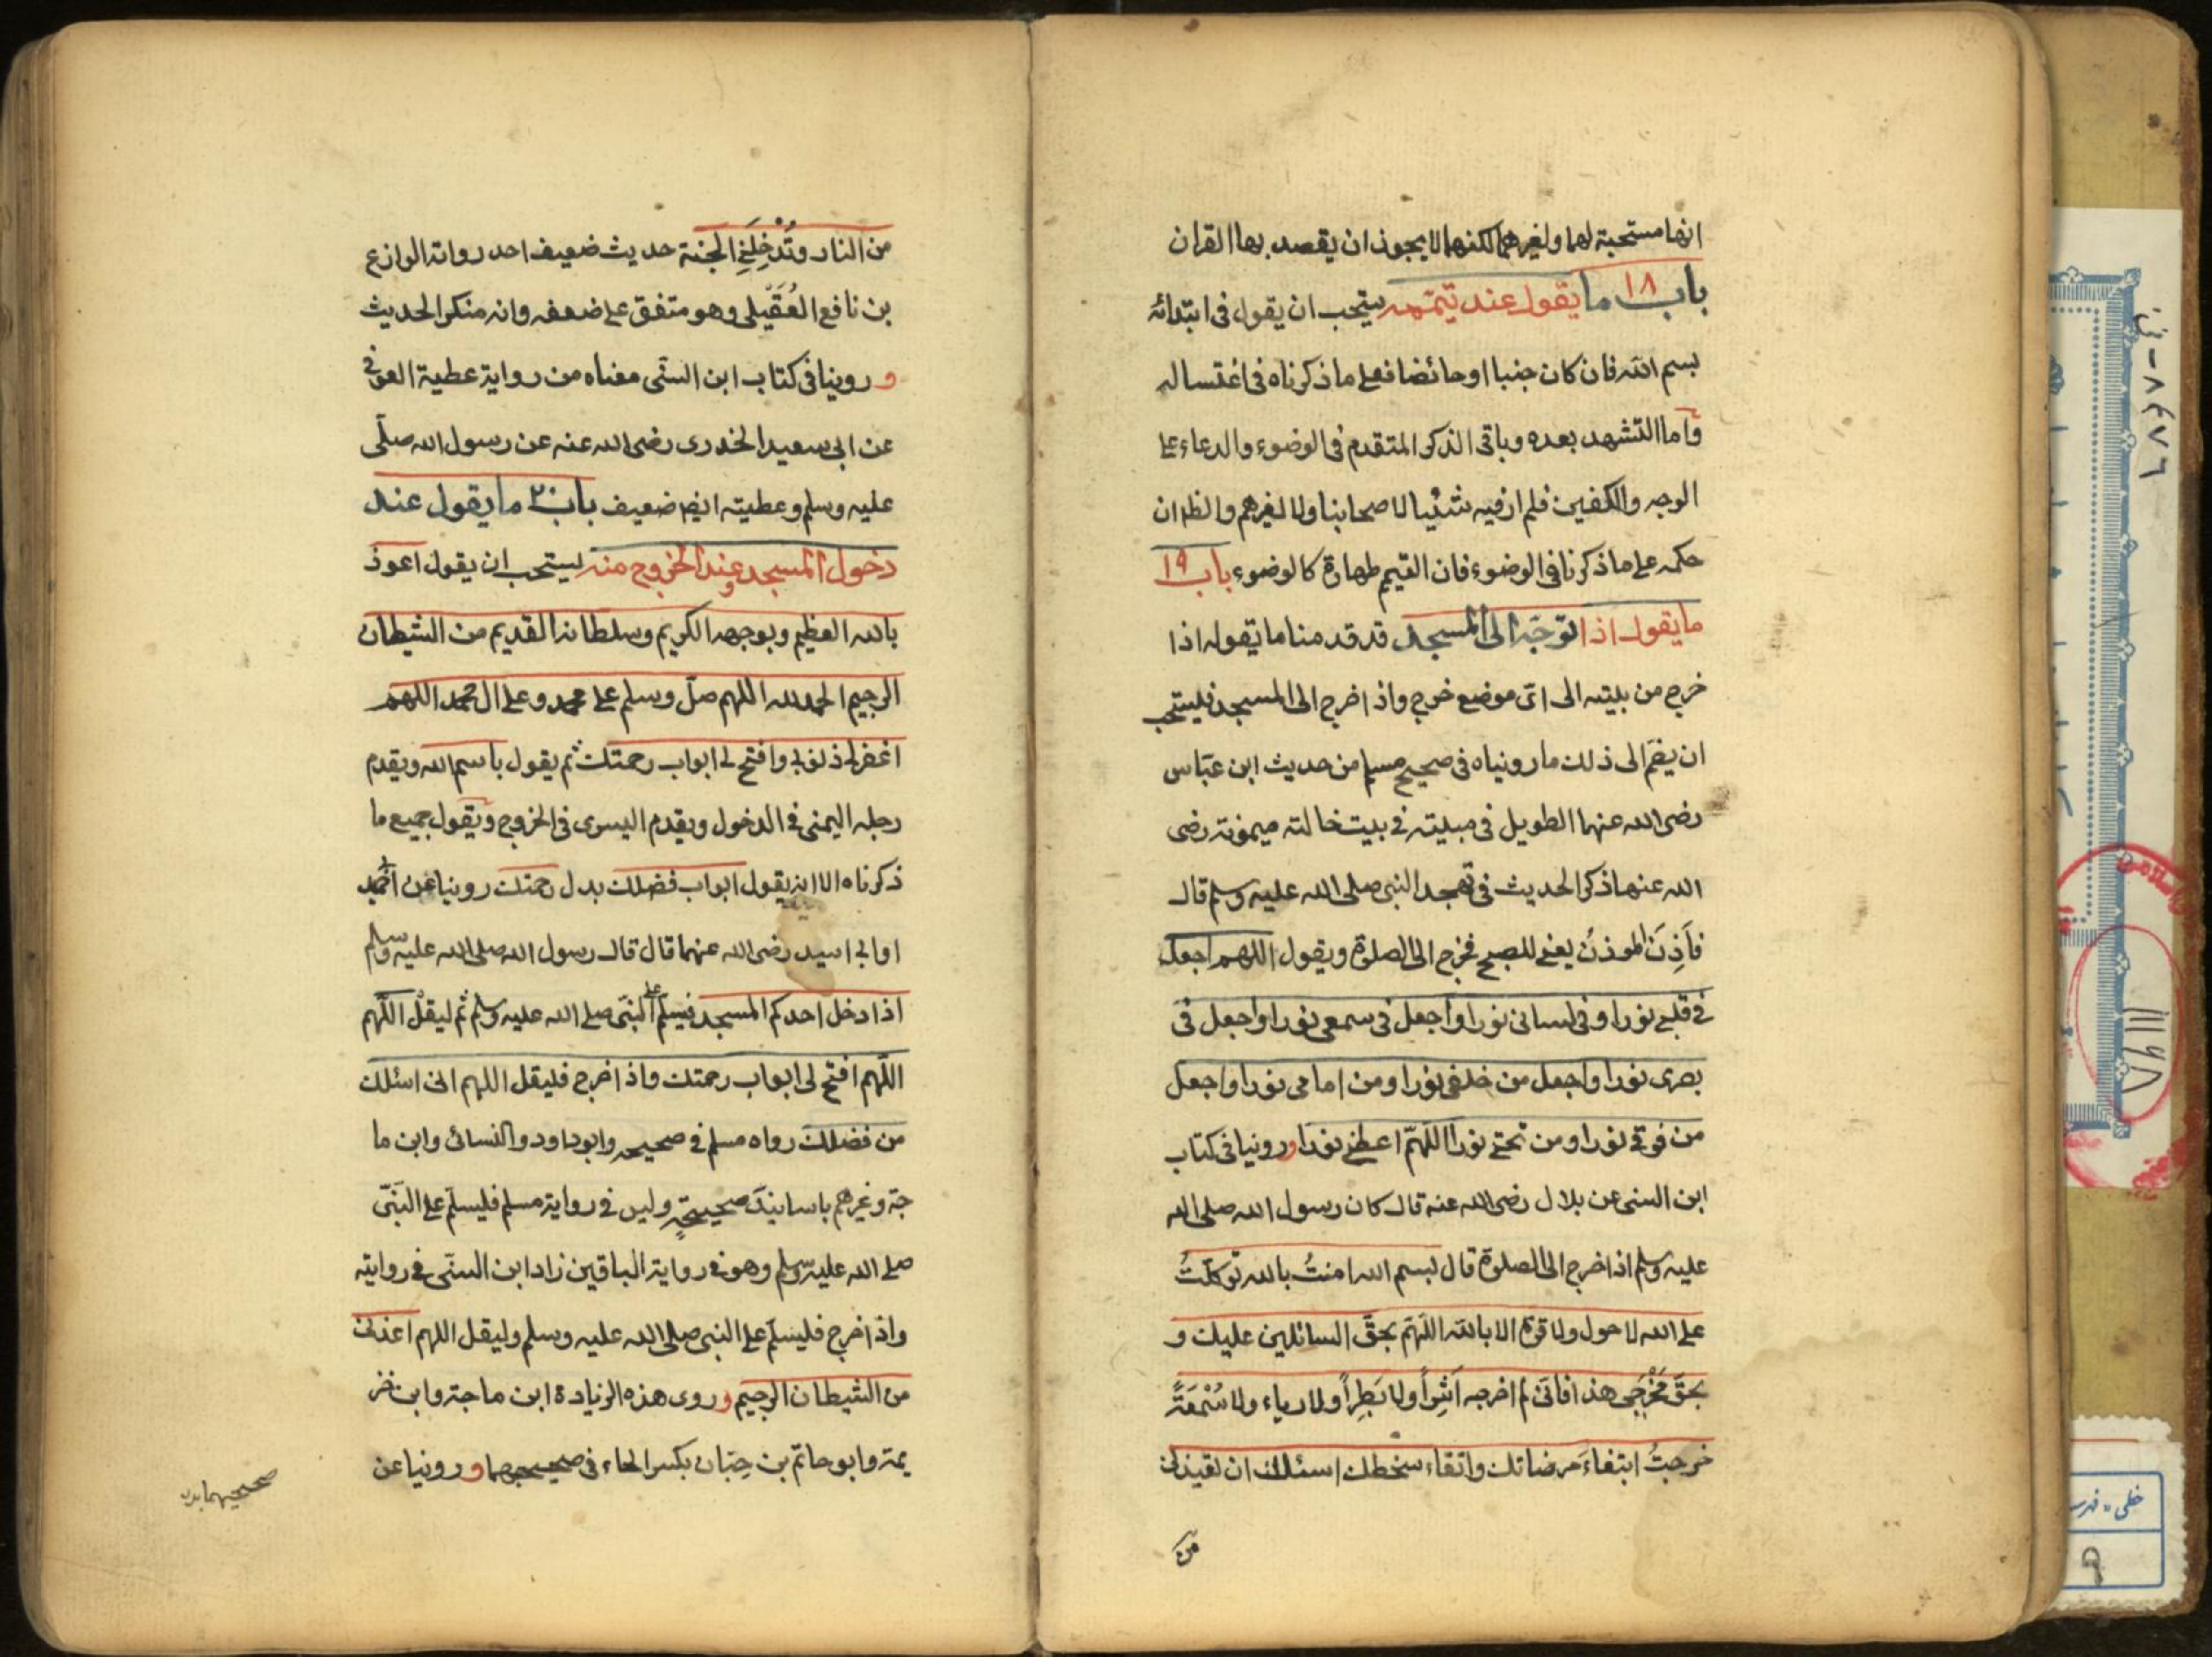 انها مستحبة لهما ولغيرهما لكنهما لا يجوز ان يقصد بها القران
باب ١٨ ما يقول عند تيممه يستحب ان يقول فى ابتدائه
بسم الله فان كان جنبا او حائضا فعلى ما ذكرناه فى اغتساله
واما التشهد بعده وباقى الذكر المتقدم فى الوضوء والدعاء على
الوجه والكفين فلم ار فيه شيئا لاصحابنا ولا لغيرهم والظ ان
حكمه على ما ذكرنا فى الوضوء فان التيمم طهارة كالوضوء باب ١٩
ما يقول اذا توجّه الى المسجد قد قدمنا ما تقوله اذا
خرج من بيته الى اىّ موضع خرج واذا خرج الى المسجد فيستحب
ان يضمّ الى ذلك ما رويناه فى صحيح مسلم من حديث ابن عبّاس
رضى الله عنهما الطويل فى مبيته فى بيت خالته ميمونة رضى
الله عنها ذكر الحديث فى تهجد النبى صلى الله عليه وسلم قال
فَاَذِنَ المُوذنُ يعنى للصبح فخرج الى الصلوة ويقول اللهم اجعل
فى قلبى نورا وفى لسانى نورا واجعل فى سمعى نورا واجعل فى
بصرى نورا واجعل من خلفى نورا ومن امامى نورا واجعل
من فوقى نورا ومن تحتى نورا اللهمّ اعطنى نورا وروينا فى كتاب
ابن السنى عن بلال رضى الله عنه قال كان رسول الله صلى الله
عليه وسلم اذا خرج الى الصلوة قال بسم الله امنتُ بالله توكلتُ
على الله لا حول ولا قوة الا بالله اللهمّ بحقّ السائلين عليك و
بحقّ مَخْرَجى هذا فانّى لم اخرجه اَشِراً ولا بَطِراً ولا رياء ولا سُمْعَةً
خرجتُ ابتغاءَ مرضاتك واتقاء سخطك اسئلك ان تعيذنى
من
من النار وتُدْخِلَنِى الجنة حديث ضعيف احد رواته الوازع
بن نافع العُقَيلى وهو متفق على ضعفه وانه منكر الحديث
وروينا فى كتاب ابن السنّى معناه من رواية عطية العوفى
عن ابى سعيد الخدرى رضى الله عنه عن رسول الله صلّى
عليه وسلم وعطيته ايضا ضعيف باب ٢٠ ما يقول عند
دخول المسجد وعند الخروج منه يستحب ان يقول اعوذ
بالله العظيم وبوجهه الكريم وسلطانه القديم من الشيطان
الرجيم الحمد لله اللهم صلّ وسلم على محمد وعلى ال محمد اللهم
اغفر لى ذنوبى وافتح لى ابواب رحمتك ثم يقول باسم الله ويقدم
رجله اليمنى فى الدخول ويقدم اليسرى فى الخروج ويقول جميع ما
ذكرناه الا انه يقول ابواب فضلك بدل رحمتك روينا عن ابى حميد
او ابى اسيد رضى الله عنهما قال قال رسول الله صلى الله عليه وسلم
اذا دخل احدكم المسجد فيسلّم على النبّى صلى الله عليه وسلم ثم ليقل اللّهم
اللّهم افتح لى ابواب رحمتك واذا خرج فليقل اللهم انى اسئلك
من فضلك رواه مسلم فى صحيحه وابو داود والنسائى وابن ما
جة وغيرهم باسانيدَ صحيحةٍ وليس فى رواية مسلم فليسلّم على النبّى
صلى الله عليه وسلم وهو فى رواية الباقين زاد ابن السنّى فى روايته
واذا خرج فليسلّم على النبى صلى الله عليه وسلم وليقل اللهم اعذنى
من الشيطان الرجيم وروى هذه الزيادة ابن ماجة وابن خز
يمة وابو حاتم بن حِبّان بكسر الحاء فى صحيحيهما وروينا عن
صحيحيهما